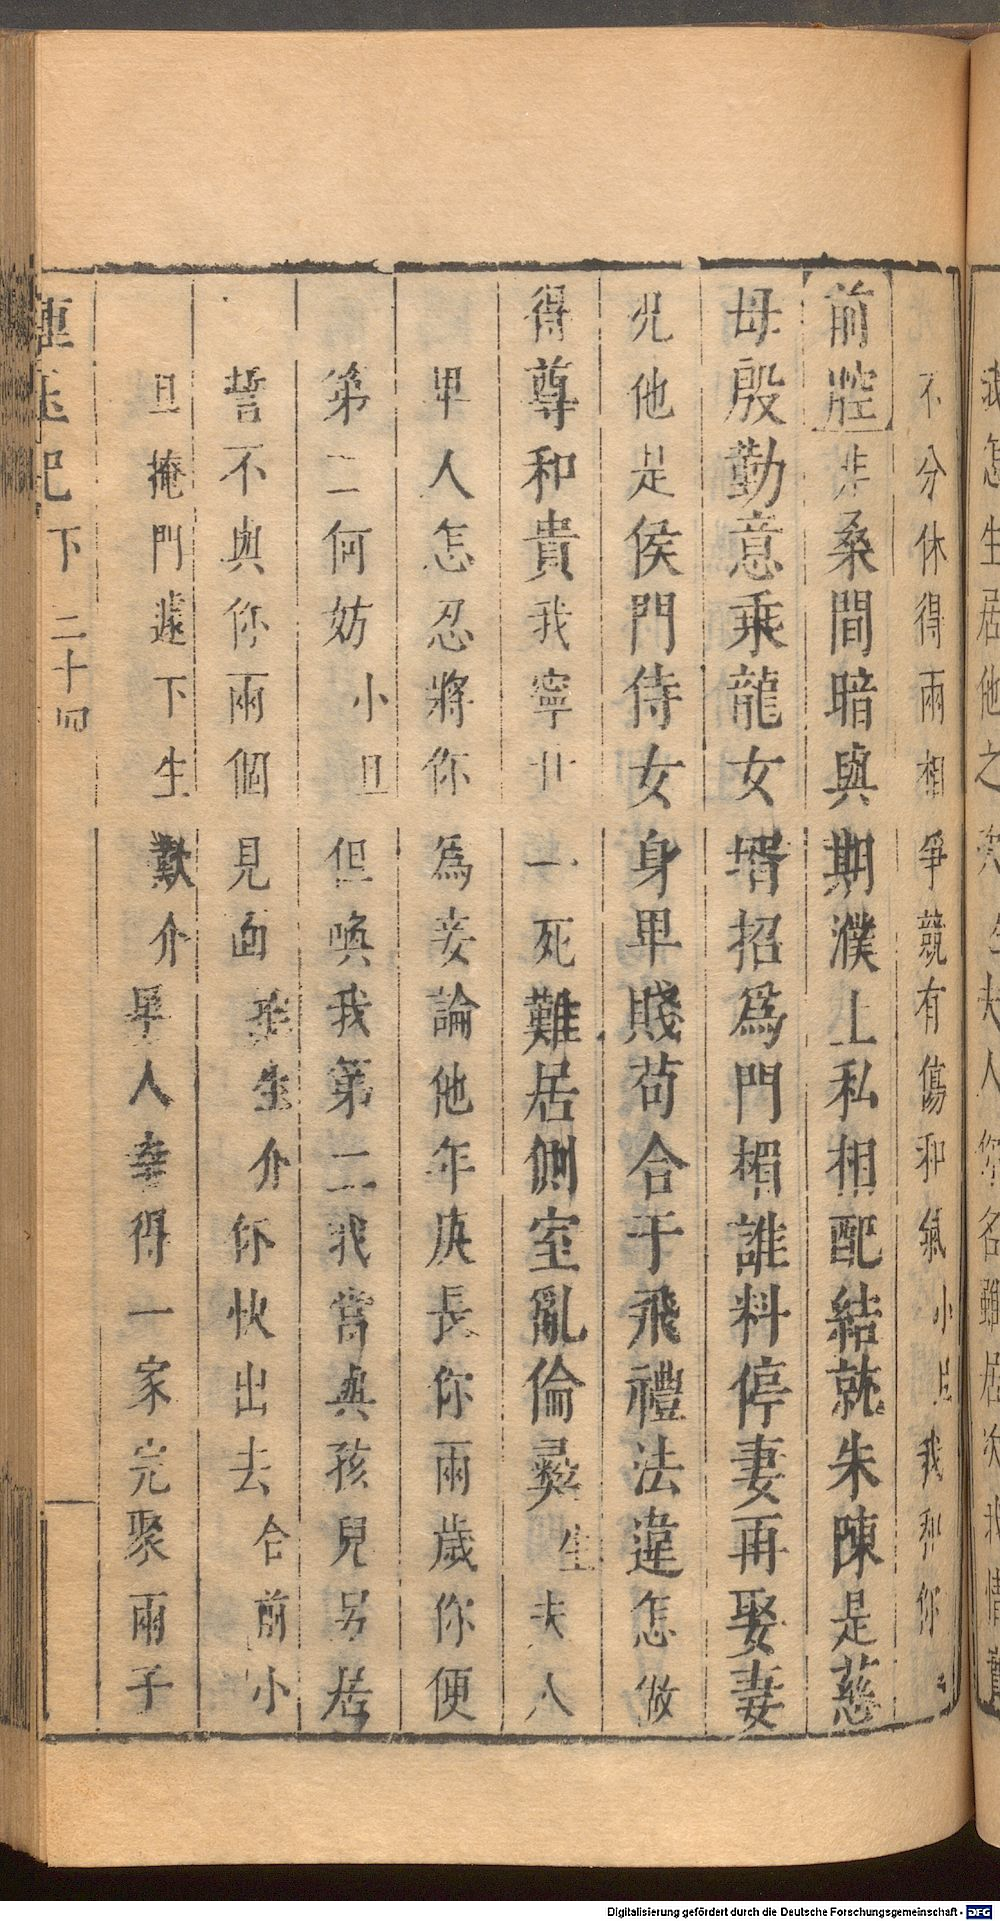 我怎生居他之 夫人你名雖居次
不分休得兩相爭競有傷和氣小旦我和你
前腔非桑間暗與期濮上私相配結就朱陳是慈
母殷勤意乘龍女壻招爲門楣誰料停妻再娶妻
况他是侯門侍女身卑賤苟合于飛禮法違怎做
得尊和貴我寧甘一死難居側室亂倫彞生夫人
卑人怎忍將你爲妾論他年庚長你兩歲你便
第二何妨小旦但喚我第二我當與孩兒另居
誓不與你兩個見面推生介你快出去合前小
旦掩門遽下生歎介卑人幸得一家完聚兩子
連環記下 二十四
Digitalisierung gefördert durch die Deutsche Forschungsgemeinschaft - DFG